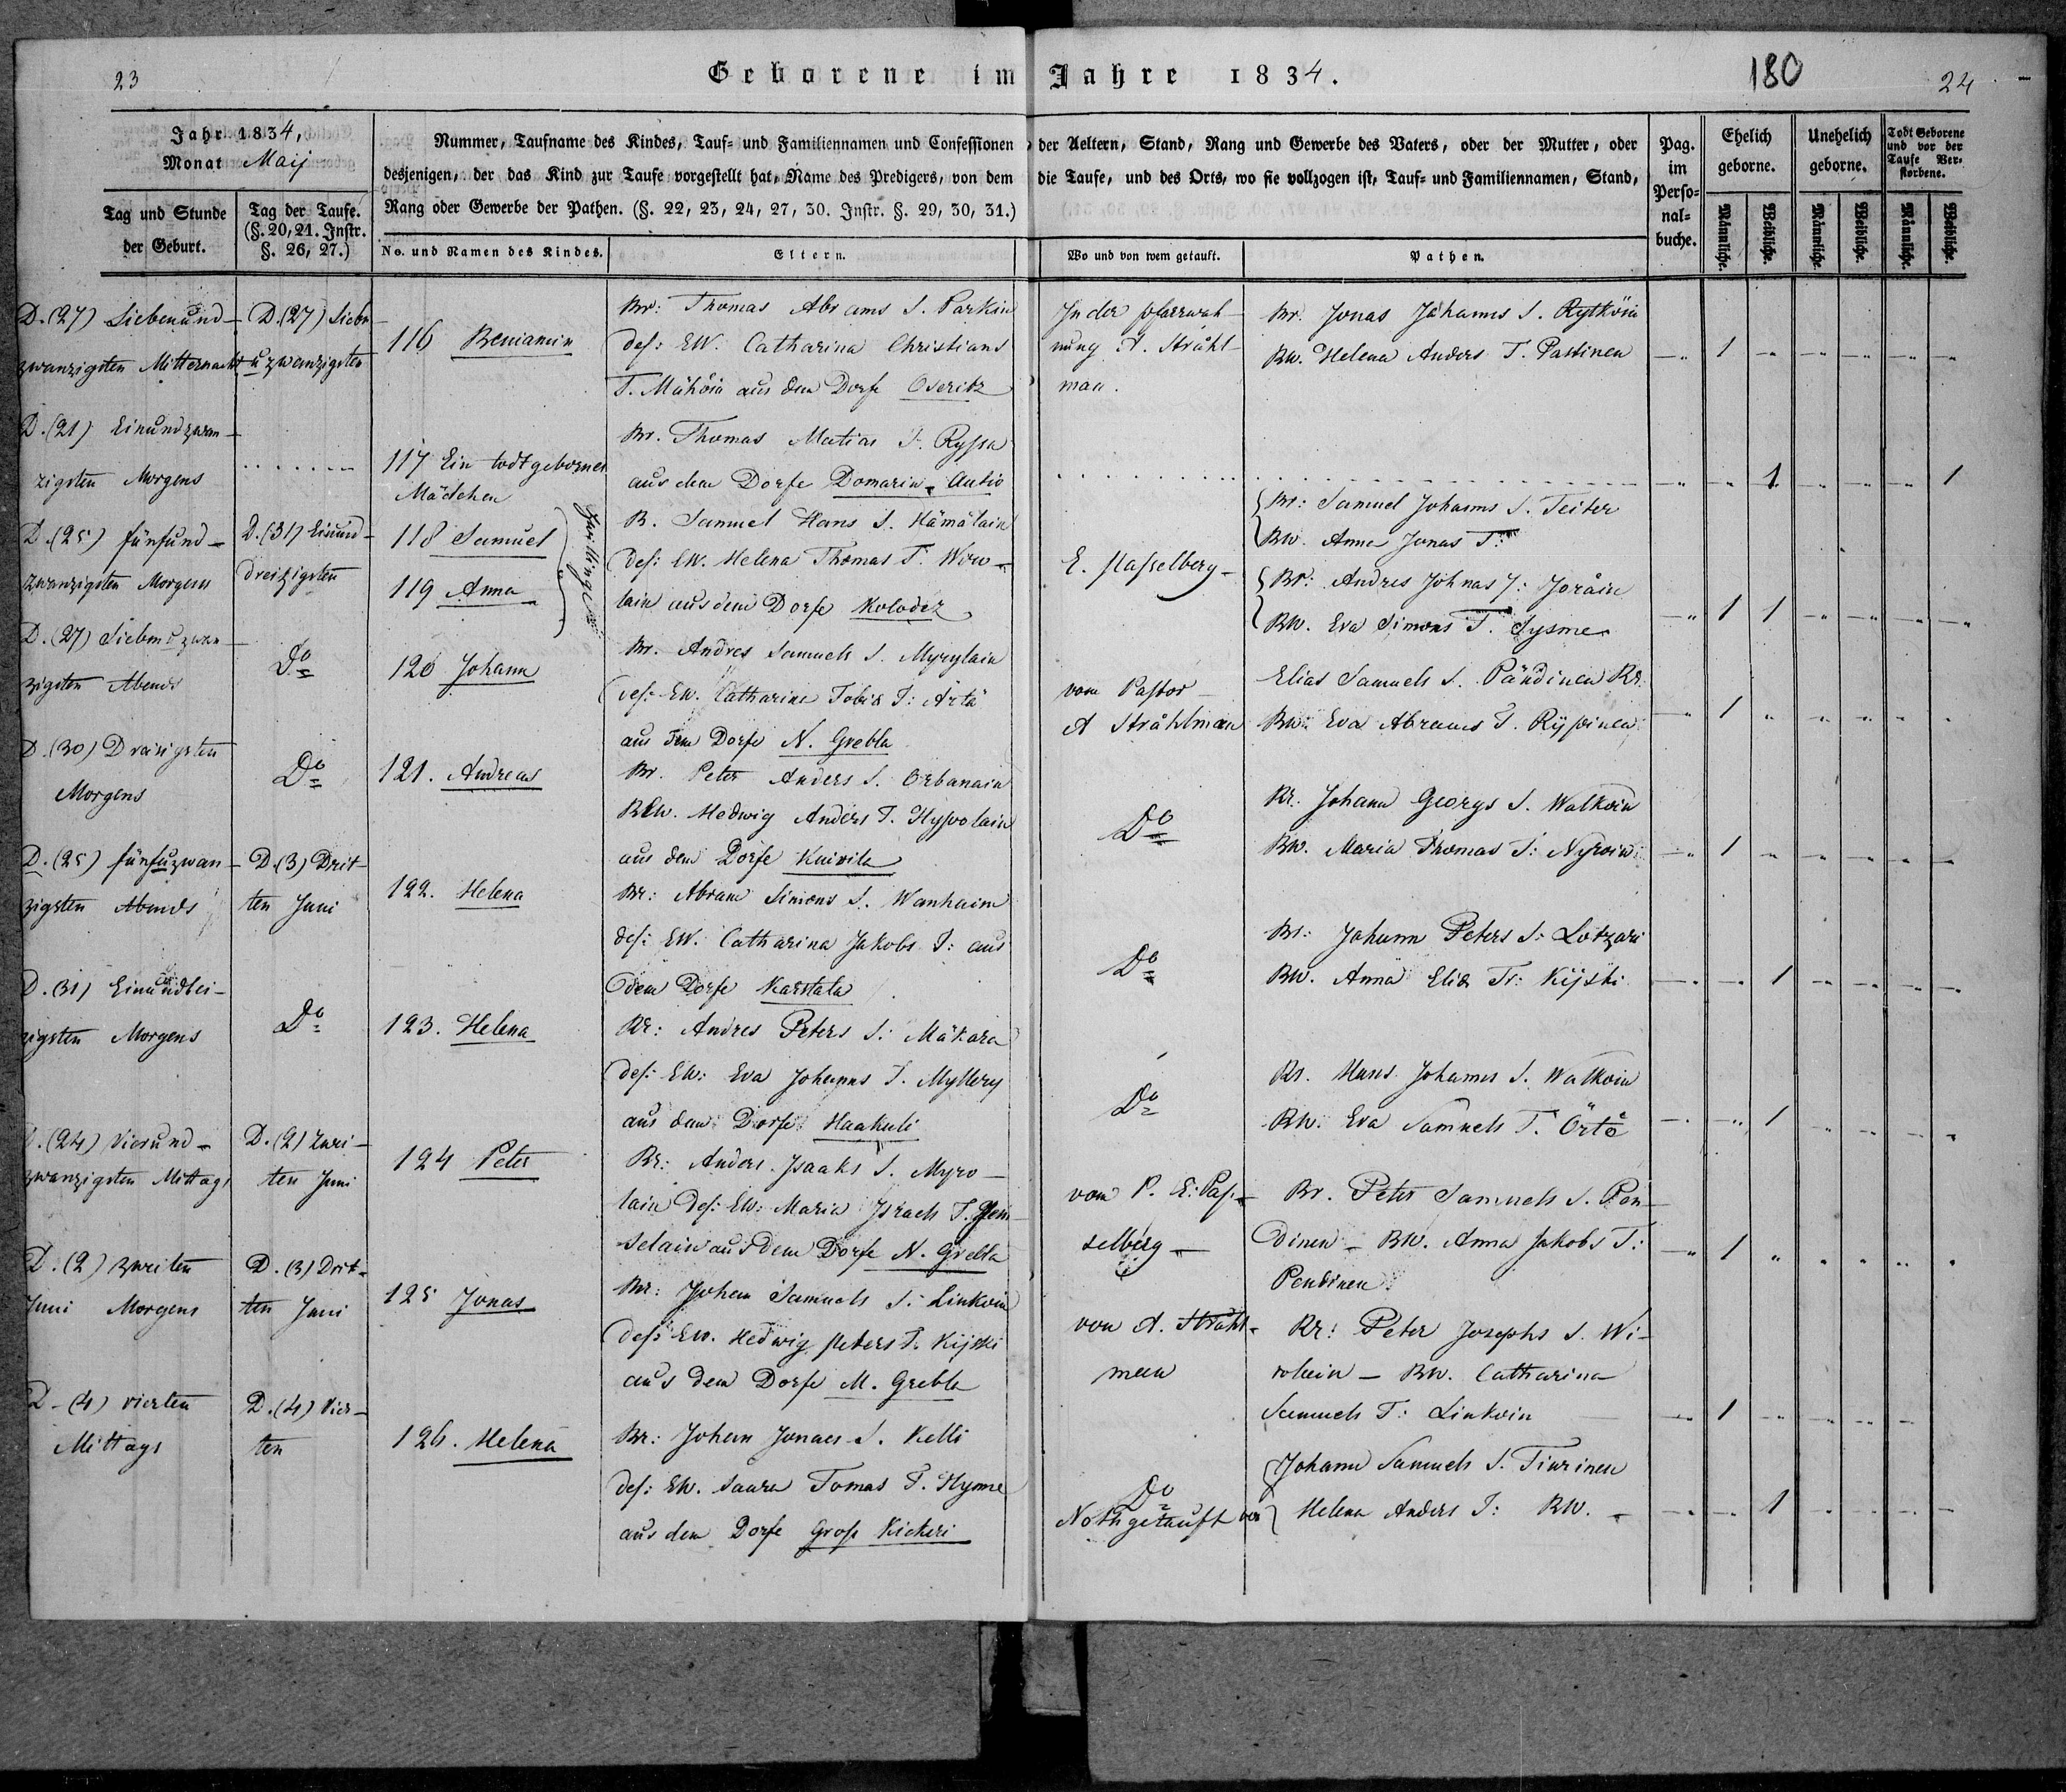 23
Geborene im Jahre 1834.
180
24
Jahr 1834,
Monat Maij
Tag und Stunde
der Geburt.
Tag der Taufe.
(§. 20, 21. Instr.
§. 26, 27.)
Nummer, Taufname des Kindes, Tauf- und Familiennamen und Confessionen der Aeltern, Stand, Rang und Gewerbe des Vaters, oder der Mutter, oder
desjenigen, der das Kind zur Taufe vorgestellt hat, Name des Predigers, von dem die Taufe, und des Orts, wo sie vollzogen ist, Tauf- und Familiennamen, Stand,
Rang oder Gewerbe der Pathen. (§. 22, 23, 24, 27, 30. Instr. §. 29, 30, 31.)
No. und Namen des Kindes.
Eltern.
Wo und von wem getauft.
Pathen.
Pag.
im
Perso-
nal-
buche.
Ehelich
geborne.
Unehelich
geborne.
Todt Geborene
und vor der
Taufe Ver-
storbene.
Männliche.
Weibliche.
Männliche.
Weibliche.
Männliche.
Weibliche.
D. (27) Siebenund-
zwanzigsten Mitternacht
D. (27) Siebn-
u zwanzigsten
116 Beniamin
Br: Thomas Abrams S. Parkin
des: EW. Catharina Christians
T. Mähöin aus dem Dorfe Oseritz
In der pfarrwoh-
nung A. Stråhl-
man.
Br. Jonas Johanns S. Rytköin
BW. Helena Anders T. Partinen
1
D. (21) Einundzwan-
zigsten Morgens
117 Ein todtgebornes
Mädchen
Br. Thomas Matias S. Ryssa
aus dem Dorfe Domarin Autio
1
1
D. (25) fünfund-
zwanzigsten Morgens
D. (31) Einund-
dreizigsten
118 Samuel
119 Anna
Zwillinge
B. Samuel Hans S. Hämälain
des: EW. Helena Thomas T. Wow-
lain aus dem Dorfe Kolodez
E. Hasselberg
Br: Samuel Johanns S. Teiter
BW. Anna Jonas T:
Br: Andres Johnas S: Joråin
BW. Eva Simons T. Sysme
1 1
D. (27) Siebenuzwan-
zigsten Abends
Do
120 Johann
Br. Andres Samuels S. Myrylain
des: EW. Catharina Tobias T: Ärtä
aus dem Dorfe N. Grebla
vom Pastor
A Stråhlman
Elias Samuels S. Pändinen Br.
BW: Eva Abrams T. Rypinen
1
D. (30) Draisigsten
Morgens
Do
121. Andreas
Br. Peter Anders S. Orbanain
BEW. Hedwig Anders T. Hyvolain
aus dem Dorfe Kuivila
Do
Br. Johann Georgs S. Walkoin
BW. Maria Thomas T: Nyroin
1
D. (25) fünfuzwan-
zigsten Abends
D. (3) Drit-
ten Juni
122. Helena
Br: Abram Simons S. Wanhain
des: EW. Catharina Jakobs T: aus
dem Dorfe Karstala
Do
Br: Johann Peters S: Lotzari
BW. Anna Elias Tr: Kijski
1
D. (31) Einunddrei-
zigsten Morgens
Do
123. Helena
Br: Andres Peters S: Mäkara
des: EW: Eva Johanns T. Myllery
aus dem Dorfe Haakuli
Do
Br. Hans Johanns S. Walkoin
BW. Eva Samuels T. Örtö
1
D. (24) Vierund-
zwanzigsten Mittags
D. (2) Zwei-
ten Juni
124 Peter
Br: Anders Isaaks S. Myro-
lain des: EW: Maria Israels T.
selain aus dem Dorfe N. Grebla
vom P. E: Has-
selberg
Br. Peter Samuels S. Pen-
dinen - BW. Anna Jakobs T:
Pendinen
1
D. (2) zweiten
Juni Morgens
D. (3) Drit-
ten Juni
125 Jonas
Br: Johan Samuels S: Linkoin
des: EW. Hedwig peters T. Kijski
aus dem Dorfe M. Grebla
von A. Stråhl-
man
Br: Peter Josephs S. Wi-
rolain - BW. Catharina
Samuels T: Linkoin
1
D. (4) vierten
Mittags
D. (4) Vier-
ten
126. Helena
Br: Johan Jonas S. Kelli
des: EW. Saara Tomas T. Hynne
aus dem Dorfe Gross Kickeri
Do
Nothgetauft von
Johann Samuels S. Tiurinen
Helena Anders T: BW.
1